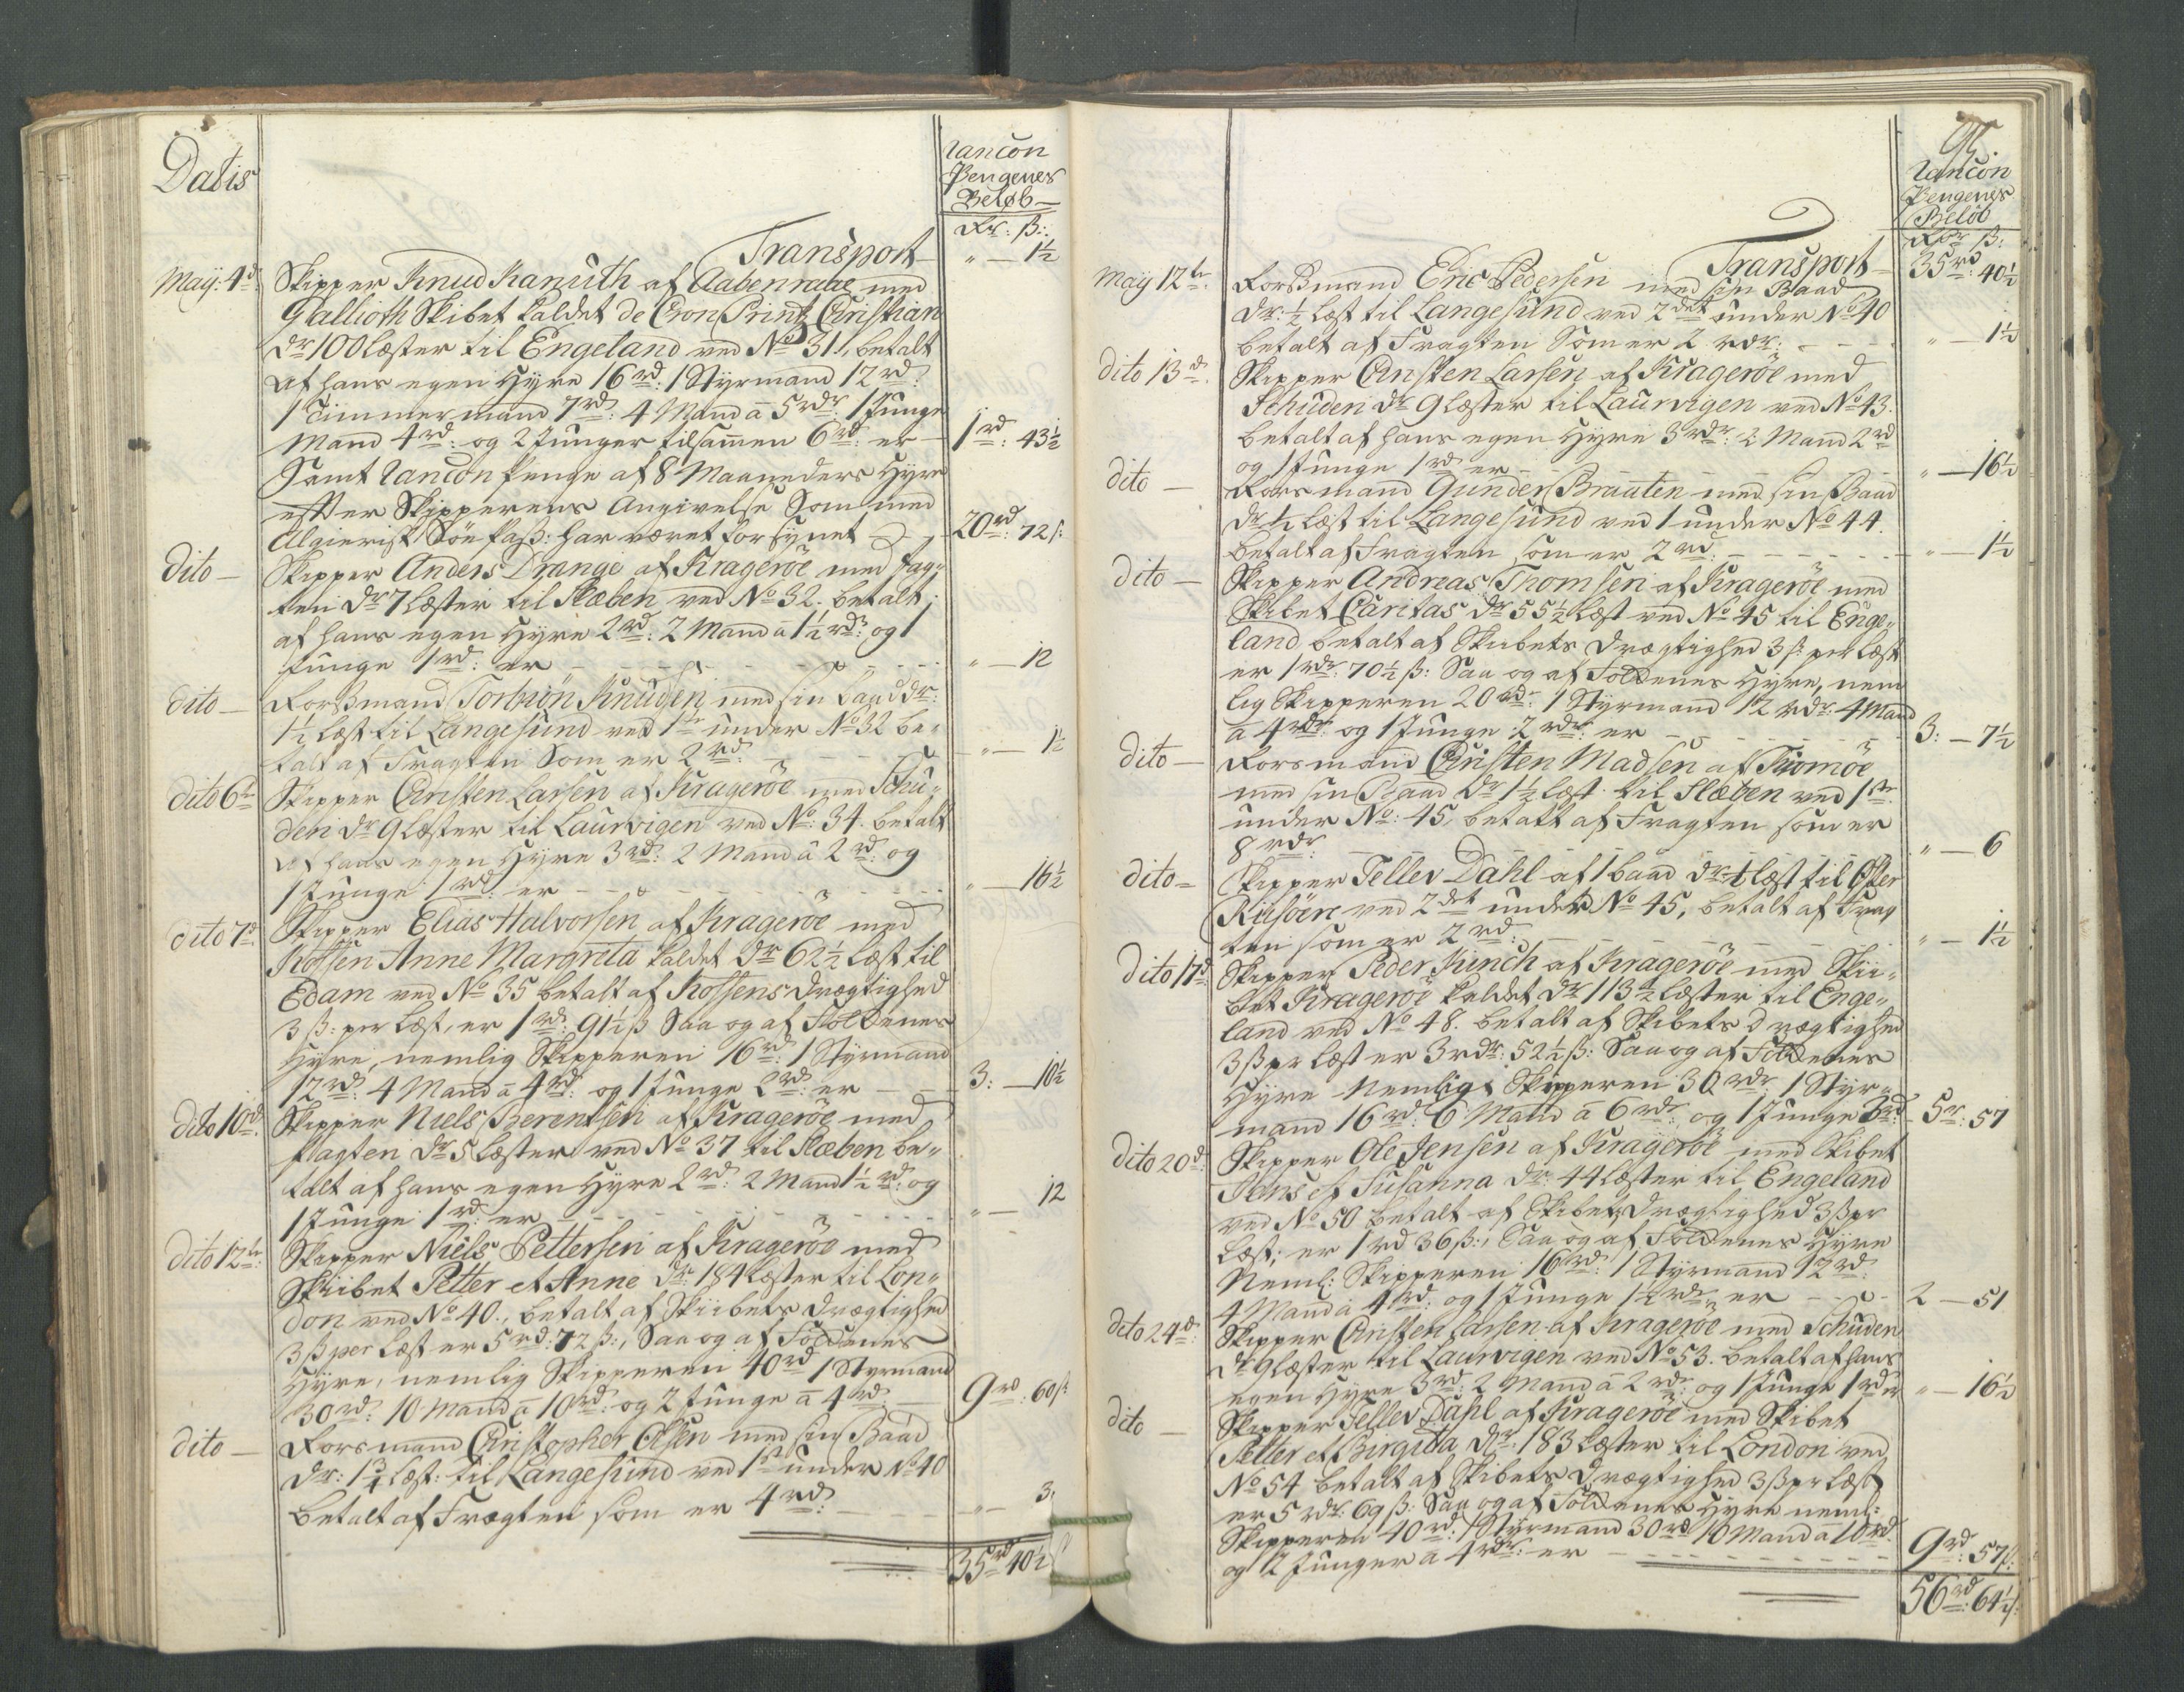 Datis
Rancon
Pengenes
Beløb
Rdr: ß:
Transport " — 1½
Maÿ: 4d: Skipper Knud Kanuth af Aabenraae med
Gallioth Skibet kaldet de Cron Printz Christian
dr 100 læster til Engeland ved No 31, betalt
af hans egen Hÿre 16rd: 1 Stÿrmand 12rd:
1 Timmermand 7rd: 4 Mand â 5rdr: 1 Junge
Mand 4rd: og 2 Junger tilsammen 6rd: er — 1rd: 43½
Samt Rancon penge af 8 Maaneders Hÿre
efter Skipperens Angivelse Som med
Algierisk Söe Pass: har været forsÿnet — 20rd: 72ß:
dito — Skipper Anders Drange af Krageröe med Jag¬
ten dr 7 læster til Skeben ved No 32. betalt
af hans egen Hÿre 2rd: 2 Mand â 1½rdr: og 1
Junge 1rd: er " — 12
dito — Forßmand Torbiön Knudsen med sin baad dr:
1½ læst til Langesund ved 1te under No 32 be¬
talt af Fragten Som er 2rd: " — 1½
dito 6te Skipper Christen Larsen af Krageröe med Schu¬
den dr 9 læster til Laurvigen ved No: 34. betalt
af hans egen Hÿre 3rd: 2 Mand â 2rd: og
1 Junge 1rd: er " — 16½
dito 7d: Skipper Elias Halvorsen af Krageröe med
Koffen Anne Margreta kaldet dr 62½ læst til
Edam ved No 35 betalt af Koffens Drægtighed
3ß: per læst, er 1rd: 91½ß Saa og af Folckenes
Hÿre, nemlig Skipperen 16rd: 1 Stÿrmand
12rd: 4 Mand â 4rd: og 1 Junge 2rd: er — 3: — 10½
dito 10d: Skipper Niels Berentsen af Krageröe med
Jagten dr 5 læster ved No 37 til Skeben be¬
talt af hans egen Hÿre 2rd: 2 Mand 1½rd: og
1 Junge 1rd: er " — 12
dito 12te: Skipper Niels Pettersen af Krageröe med
Skibet Petter et Anne dr: 184 læster til Lon¬
don ved No 40., betalt af Skibets drægtighed
3ß per læst er 5rd: 72ß:, Saa og af Folckenes
Hÿre, nemlig Skipperen 40rd 1 Styrmand
30rd: 10 Mand â 10rd: og 2 Junge â 4rd: 9rd: 60ß
dito — Forsmand Christopher Olsen med sin Baad
dr: 1¾ læst: til Langesund ved 1st under No 40
betalt af Fragten som er 4rd: " — 3.
35rd 40½ß
95.
Rancon
Pengenes
Beløb
Rdr ß:
Transport 35rd: 40½
May 12te: Forßmand Eric Pedersen med sin Baad
dr: ½ læst til Langesund ved 2det under No 40
betalt af Fragten Som er 2 rdr: " — 1½
dito 13de Skipper Christen Larsen af Krageröe med
Schuden dr 9 læster til Laurvigen ved No 43.
betalt af hans egen Hÿre 3rdr: 2 Mand 2rd
og 1 Junge 1rd er " — 16½
dito — Forsmand Gunder Brauten med sin Baad
dr ½ læst til Langesund ved 1 under No 44.
betalt af Fragten som er 2rd: " — 1½
dito — Skipper Andreas Thomsen af Krageröe med
Skibet Caritas dr 55½ læst ved No 45 til Enge¬
land, betalt af Skibets drægtighed 3ß: per læst
er 1rdr: 70½ß: Saa og af Folckenes Hÿre, nem
lig Skipperen 20rdr: 1 Stÿrmand 12 rdr: 4 Mand
â 4rdr: og 1 Junge 2rdr: er 3: — 7½
dito — Forsmand Christen Madsen af Tromöe
med sin Baad dr 1½ læst til Skeben ved 1te
under No: 45, betalt af Fragten som er
8 rdr: " — 6
dito — Skipper Tellev Dahl af 1 baad dr: 1 læst til Öster
Riisöere ved 2det under No 45, betalt af Frag
ten som er 2rd: " — 1½
dito 17d: Skipper Peder Kunch af Krageröe med Skii¬
bet Krageröe kaldet dr 113½ læster til Enge¬
land ved No 48. betalt af Skibets drægtighed
3ß pr læst er 3rdr: 52½ß: Saa og af Folckenes
Hÿre Nemlig: Skipperen 30rdr 1 Stÿr¬
mand 16rd: 6 Mand â 6rdr: og 1 Junge 3rd: 5r: 57
dito 20d: Skipper Ole Jensen af Krageröe med Skibet
Jens et Susanna dr: 44 læster til Engeland
ved No 50 betalt af Skibets drægtighed 3ß pr
læst, er 1rd 36ß:, Saa og af Folckenes Hÿre
Neml: Skipperen 16rd: 1 Stÿrmand 12rd:
4 Mand â 4rd: og 1 Junge 1½rdr: er 2 — 51
dito 24de: Skipper Christen Larsen af Krageröe med Schuden
dr 9 læster til Laurvigen ved No 53. betalt af hans
egen Hÿre 3rd: 2 Mand â 2rdr: og 1 Junge 1rdr " — 16½
dito — Skipper Tellev Dahl af Krageröe med Skibet
Petter et Birgitta dr: 183 læster til London ved
No 54 betalt af Skibets Drægtighed 3ß pr læst
er 5rdr: 69ß: Saa og af Folckenes Hÿre neml:
Skipperen 40rd: 1 Stÿrmand 30rd 10 Mand â 10rd.
og 2 Junger â 4rdr: er 9rd: 57ß:
56rd: 64½ß: